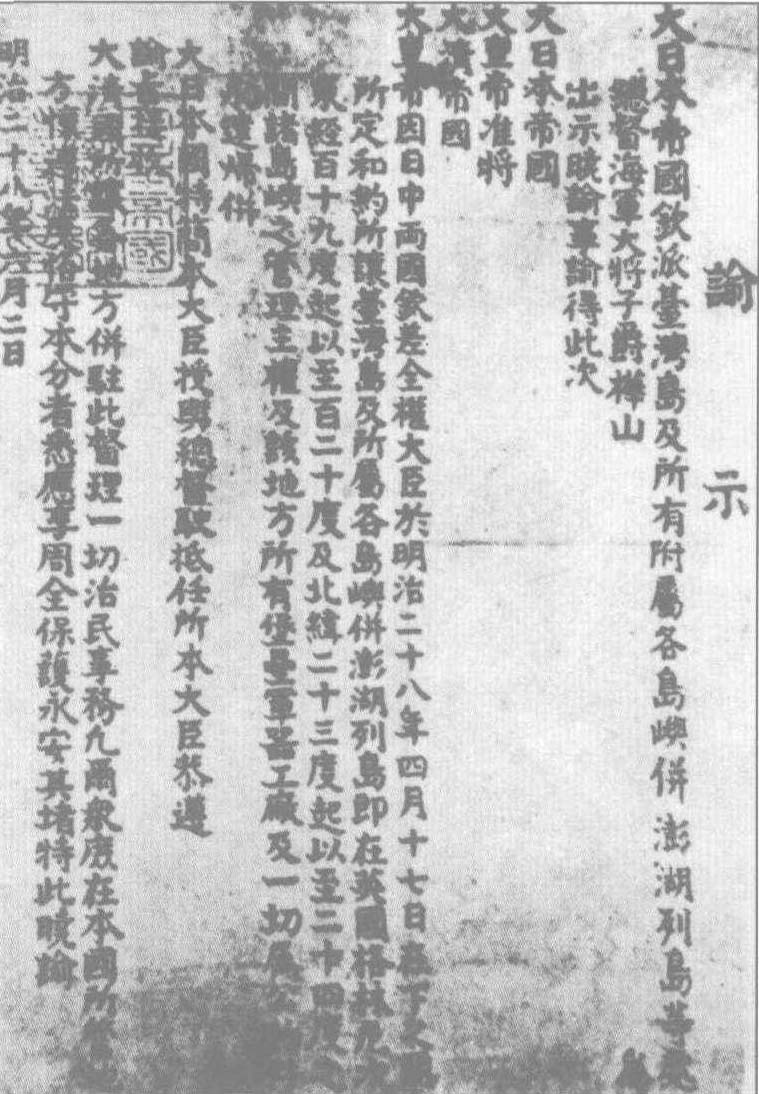 諭示
大日本帝國欽派臺灣島及所有附屬各島嶼併澎湖列島等處
總督海軍大將子爵樺山
出示曉諭事諭得此次
大日本帝國
大皇帝准將
大清帝國
大皇帝因日中両國欽差全權大臣於明治二十八年四月十七日在下之關
所定和約所讓臺灣島及所屬各島嶼併澎湖列島即在英國格林
東經百十九度起以至百二十度及北緯二十三度起以至二十四度之
間諸島嶼之管理主權及該地方所有堡壘軍器工廠及一切屬公
歸併
大日本國特簡本大臣授與總督駛抵任所本大臣恭遵
諭
大清國所地方併駐此督理一切治民事務凡爾衆庶在本國所管
方懍本分者悉應享周全保護永安其堵特此曉諭
明治二十八年六月二日